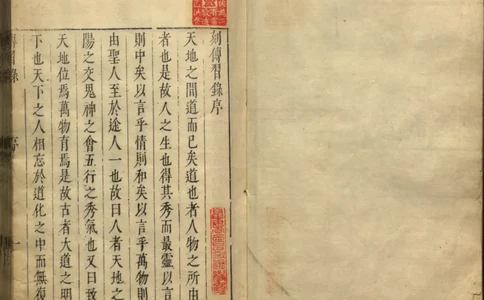 刻傳習錄序
天地之間道而已矣道也者人物之所由
者也是故人之生也得其秀而最靈以言
則中矣以言乎情則和矣以言乎萬物則
由聖人至於途人一也故曰人者天地之
陽之交鬼神之會五行之秀氣也又曰致
天地位焉萬物育焉是故古者大道之明
下也天下之人相忘於道化之中而無復
序
一